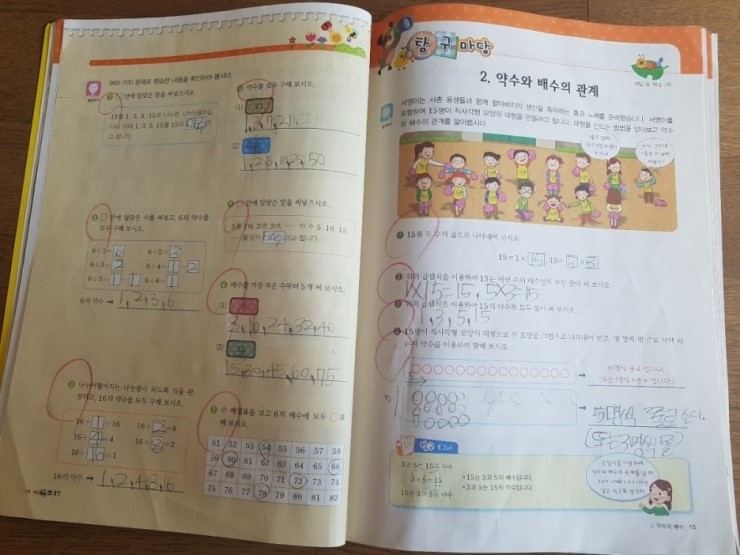 여러 가지 문제로 학습한 내용을 확인하여 봅시다.
1 □ 안에 알맞은 말을 써넣으시오.
15를 1, 3, 5, 15로 나누면 나누어떨어집
니다. 이때 1, 3, 5, 15를 15의 약수라
고 합니다.
2 □ 안에 알맞은 수를 써넣고, 6의 약수를
모두 구해 보시오.
6÷1=6 6÷2=3
6÷3=2 6÷4=1 2
6÷5=1 1 6÷6=1
6의 약수 → 1, 2, 3, 6
3 나누어떨어지는 나눗셈이 되도록 식을 완
성하고, 16의 약수를 모두 구해 보시오.
16÷1=16 16÷2=8
16÷4=4 16÷8=2
16÷16=1
16의 약수 →
약수를 모두 구해 보시오.
(1) 21
(2) 50
1, 2, 5, 10, 25, 50
□ 안에 알맞은 말을 써넣으시오.
5를 1배, 2배, 3배, …… 한 수 5, 10, 15,
…를 5의 배수라고 합니다.
6 배수를 가장 작은 수부터 5개 써 보시오.
(1)
8, 16, 24, 32, 40
(2)
15, 30, 45, 60, 75
7 수 배열표를 보고 6의 배수에 모두 ○표
해 보시오.
51 52 53 54 55 56 57 58
59 60 61 62 63 64 65 66
67 68 69 70 71 72 73 74
75 76 77 78 79 80 81 82
14
탐구마당
2. 약수와 배수의 관계
서영이는 사촌 동생들과 함께 할아버지의 생신을 축하하는 춤과 노래를 준비했습니다. 서영이를
포함하여 15명이 직사각형 모양의 대형을 만들려고 합니다. 대형을 만드는 방법을 알아보고 약수
와 배수의 관계를 알아봅시다.
1 15를 두 수의 곱으로 나타내어 보시오.
15=1×15, 15=5×3
2 위의 곱셈식을 이용하여 15는 어떤 수의 배수인지 모두 찾아 써 보시오.
1×15=15, 5×3=15
3 위의 곱셈식을 이용하여 15의 약수를 모두 찾아 써 보시오.
1, 3, 5, 15
4 15명이 직사각형 모양의 대형으로 선 모양을 그림으로 나타내어 보고, 몇 명씩 몇 줄로 서야 하
는지 약수를 이용하여 말해 보시오.
15명씩 1줄로 섭니다.
5명씩 3줄로 선다.
3과 5는 15의 약수
3×5=15
15는 3과 5의 배수
• 15는 3과 5의 배수입니다.
• 3과 5는 15의 약수입니다.
1. 약수와 배수 15